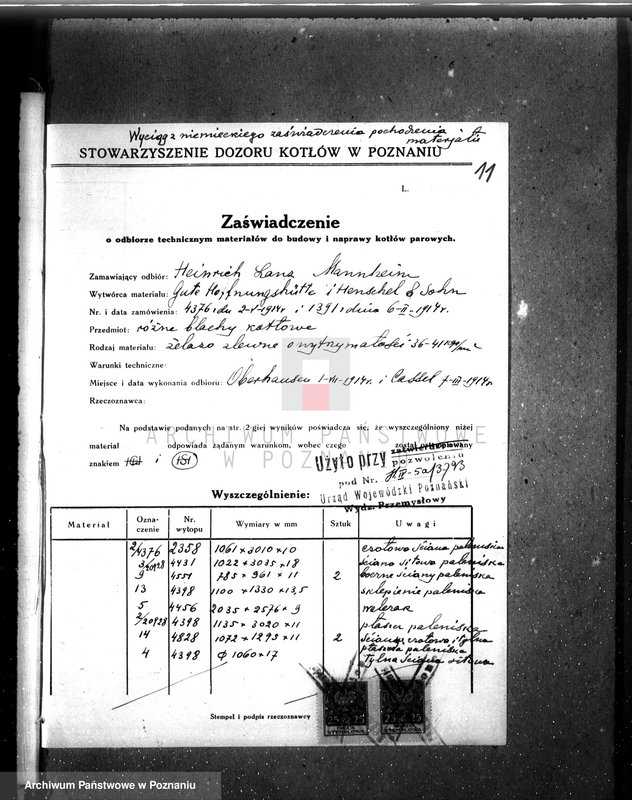 Wyciąg z niemieckiego zaświadczenia pochodzenia
materjału
STOWARZYSZENIE DOZORU KOTŁÓW W POZNANIU
11
L.
Zaświadczenie
o odbiorze technicznym materiałów do budowy i naprawy kotłów parowych.
Zamawiający odbiór: Heinrich Lanz Mannheim
Wytwórca materiału: Gute Hoffnungshütte i Henschel & Sohn
Nr. i data zamówienia: 4376 i du 2-1-1914r. i 1391 dnia 6-II-1914r.
Przedmiot: różne blachy kotłowe
Rodzaj materiału: żelazo zlewne o wytrzymałości 36-41 kg/mm²
Warunki techniczne:
Miejsce i data wykonania odbioru: Oberhausen 1-VII-1914r. i Cassel 7-III-1914r
Rzeczoznawca:
Na podstawie podanych na str. 2-giej wyników poświadcza się, że wyszczególniony niżej
materiał odpowiada żądanym warunkom, wobec czego został
znakiem i
ARCHIWUM PAŃSTWOWE
W POZNANIU
Użyto przy pozwoleniu
pod Nr.
Urząd Wojewódzki Poznański
Wydz. Przemysłowy
Wyszczególnienie:
Materiał Ozna-czenie Nr. wytopu Wymiary w mm Sztuk Uwagi
2/4376 2358 1061 × 3010 × 10 czołowa ściana paleniska
3/20928 4431 1022 × 3035 × 18 ściana sitowa paleniska
9 4551 785 × 961 × 11 2 boczne ściany paleniska
13 4398 1100 × 1330 × 13,5 sklepienie paleniska
5 4456 2035 × 2576 × 9 walczak
2/20928 4398 1135 × 3020 × 11 płaszcz paleniska
14 4828 1072 × 1293 × 11 2 ściany czołowa i tylna
płaszcza paleniska
4 4398 φ 1060 × 17 tylna ściana sitowa
Stempel i podpis rzeczoznawcy
Archiwum Państwowe w Poznaniu